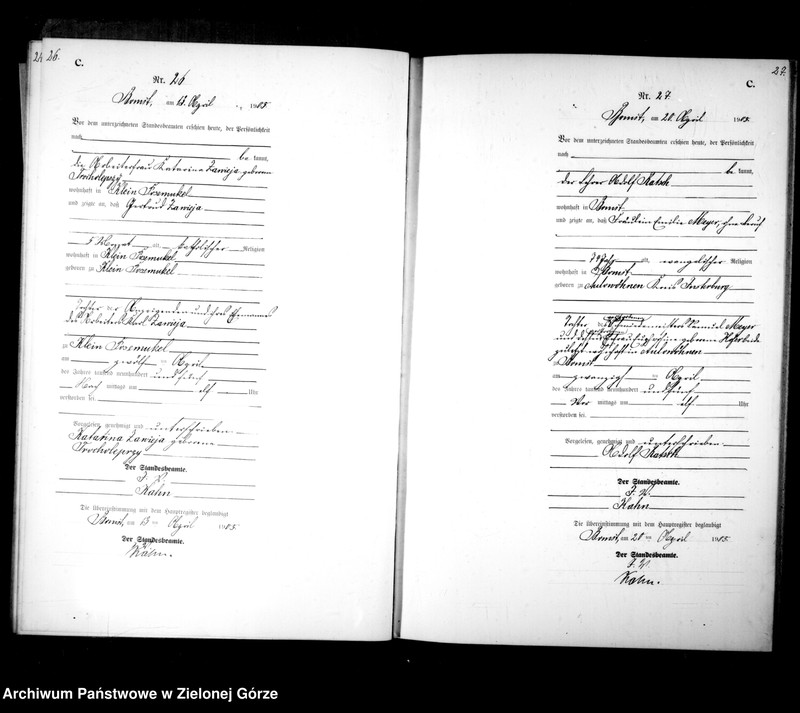 26.
C.
Nr. 26
Bomst, am 13. April 1905
Vor dem unterzeichneten Standesbeamten erschien heute, der Persönlichkeit
nach
be kannt,
die Arbeiterfrau Katarina Zawieja geborene
wohnhaft in Klein Posemukel
und zeigte an, daß Gertrud Zawieja
5 Monat alt, katholischer Religion
wohnhaft in Klein Posemukel
geboren zu Klein Posemukel
Tochter der Anzeigenden und ihres Ehemannes
des Arbeiters Zawieja
zu Klein Posemukel
am zwölften April
des Jahres tausend neunhundert und fünf
Nach mittags um elf Uhr
verstorben sei.
Vorgelesen, genehmigt und unterschrieben
Katarina Zawieja geborene
Der Standesbeamte.
J. V.
Kahn
Die Übereinstimmung mit dem Hauptregister beglaubigt
Bomst, am 13 ten April 1905.
Der Standesbeamte.
Kahn.
27.
C.
Nr. 27.
Bomst, am 20. April 1905.
Vor dem unterzeichneten Standesbeamten erschien heute, der Persönlichkeit
nach
be kannt,
der Lehrer Adolf Katsch
wohnhaft in Bomst
und zeigte an, daß Fräulein Emilie Meyer, ohne Beruf
Jahr alt, evangelischer Religion
wohnhaft in Bomst
geboren zu Aulowöhnen Kreis Insterburg
Tochter des Schmiedemeisters Samuel Meyer
und dessen Ehefrau geborene
zuletzt wohnhaft in Aulowöhnen
Bomst
am zwanzigsten April
des Jahres tausend neunhundert und fünf
Vor mittags um elf Uhr
verstorben sei.
Vorgelesen, genehmigt und unterschrieben
Adolf Katsch
Der Standesbeamte.
J. V.
Kahn
Die Übereinstimmung mit dem Hauptregister beglaubigt
Bomst, am 20 ten April 1905
Der Standesbeamte.
J. V.
Kahn.
Archiwum Państwowe w Zielonej Górze